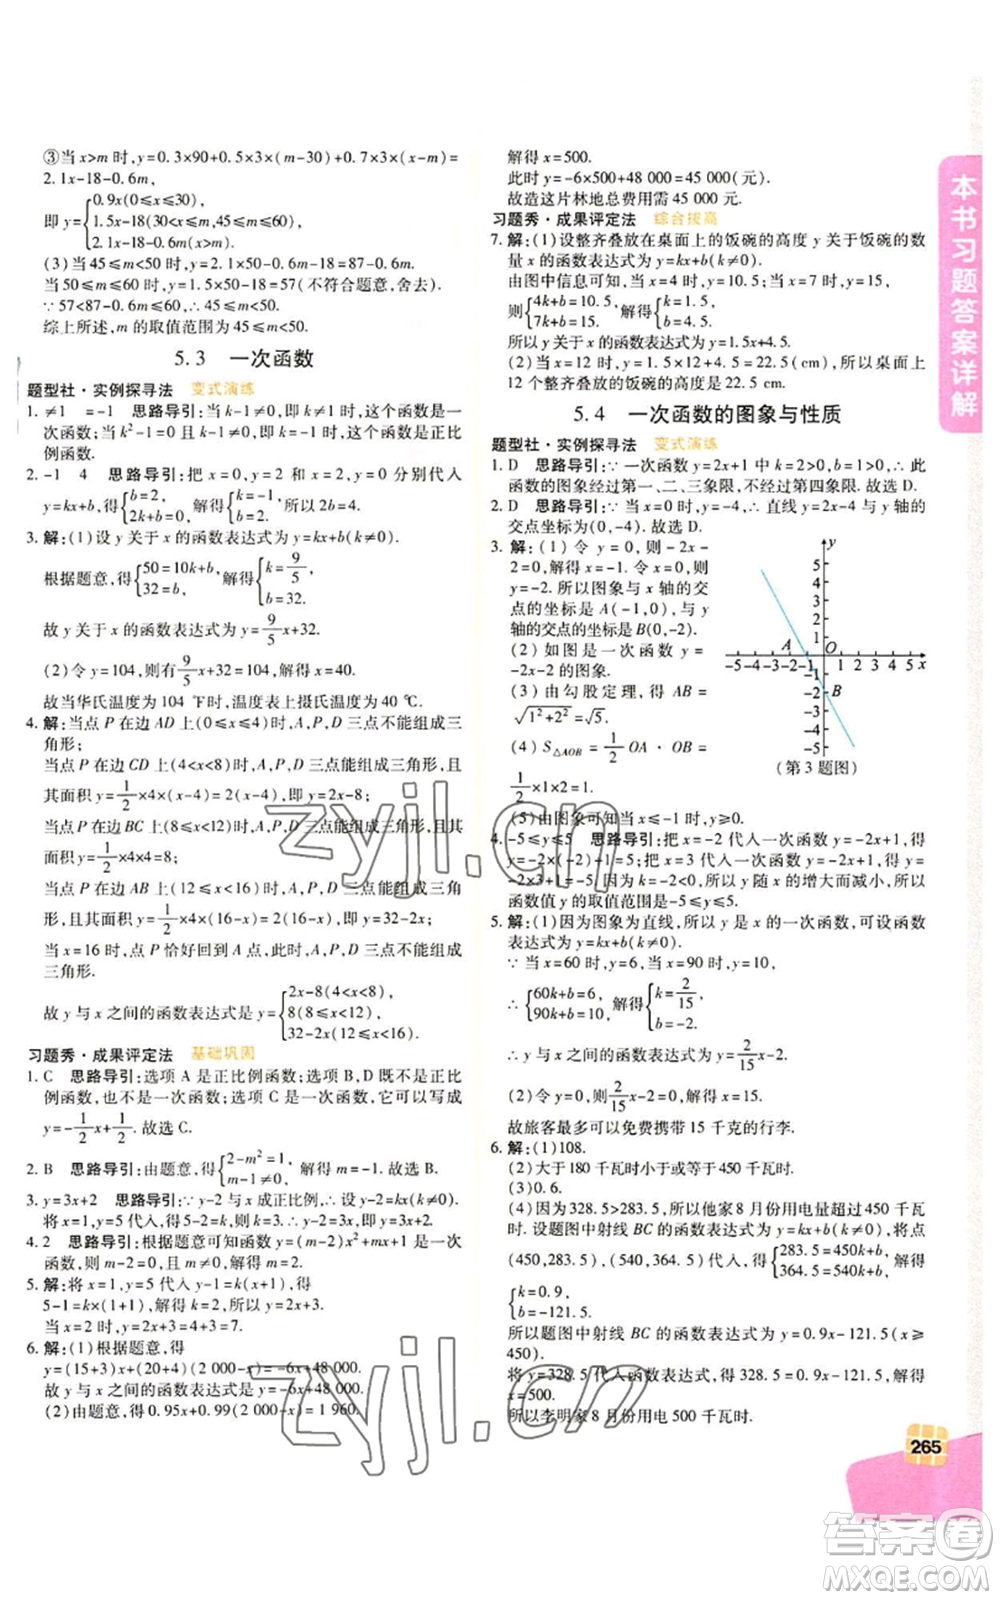 ③当 x>m 时,y=0.3×90+0.5×3×(m-30)+0.7×3×(x-m)=
2.1x-18-0.6m,
即 y={0.9x(0≤x≤30),
1.5x-18(30<x≤m),
2.1x-18-0.6m(x>m).
(3)当 45≤m<50 时,y=2.1×50-18-0.6m=87-0.6m,
当 50≤m≤60 时,y=1.5x-18=57(不符合题意,舍去).
∵57<87-0.6m≤60,∴45≤m<50.
综上所述,m 的取值范围为 45≤m<50.
5.3 一次函数
题型社·实例探寻法 变式演练
1. ≠1 =-1 思路导引:当 k-1≠0,即 k≠1 时,函数是一次函数;当 k²-1=0,且 k-1≠0,即 k=-1 时,函数是正比例函数.
2. -1 4 思路导引:把 x=0,y=2 和 x=2,y=0 分别代入
y=kx+b,得{b=2, 2k+b=0, 解得{k=-1, b=2. 所以 2b=4.
3. 解:(1)设 y 关于 x 的函数表达式为 y=kx+b(k≠0).
根据题意,得{50=10k+b, 32=b, 解得{k=9/5, b=32.
故 y 关于 x 的函数表达式为 y=9/5x+32.
(2)令 y=104,则有 9/5x+32=104,解得 x=40.
故当华氏温度为 104 ℉时,温度表上摄氏温度为 40 ℃.
4. 解:当点 P 在边 AD 上(0≤x≤4)时,A,P,D 三点不能组成三角形;
当点 P 在边 CD 上(4<x<8)时,A,P,D 三点能组成三角形,且
其面积 y=1/2×4×(x-4)=2(x-4)=2x-8;
当点 P 在边 BC 上(8≤x≤12)时,A,P,D 三点能组成三角形,且
其面积 y=1/2×4×4=8;
当点 P 在边 AB 上(12≤x<16)时,A,P,D 三点能组成三角形,
且其面积 y=1/2×4×(16-x)=2(16-x)=32-2x;
当 x=16 时,点 P 恰好回到 A 点,此时,A,P,D 三点不能组成三角形.
故 y 与 x 之间的函数表达式是 y={2x-8(4<x<8),
8(8≤x≤12),
32-2x(12≤x<16).
习题秀·成果评定法 基础巩固
1. C 思路导引:选项 A 是正比例函数;选项 B,D 既不是正比例函数,也不是一次函数;选项 C 是一次函数,它可以写成
y=-1/2x+1/2. 故选 C.
2. B 思路导引:由题意,得{2-m²=1, m-1≠0, 解得 m=-1. 故选 B.
3. y=3x+2 思路导引:∵y-2 与 x 成正比例,∴设 y-2=kx(k≠0).
将 x=1,y=5 代入,得 k=3.∴y-2=3x,∴y=3x+2.
4. 2 思路导引:根据题意可知函数 y=(m-2)x²+mx-1 是一次函数,则 m-2=0,且 m≠0,解得 m=2.
5. 解:将 x=1,y=5 代入 y-1=k(x+1),得
5-1=k×(1+1),解得 k=2,所以 y=2x+3.
当 x=2 时,y=2×2+3=7.
6. 解:(1)根据题意,得
y=(15+3)x+(20+4)(2 000-x)=-6x+48 000,
故 y 与 x 之间的函数表达式为 y=-6x+48 000.
(2)由题意,得 0.95x+0.99(2 000-x)=1 960,
解得 x=500.
此时 y=-6×500+48 000=45 000(元).
故造这片林地总费用需 45 000 元.
习题秀·成果评定法 综合拔高
7. 解:(1)设整齐叠放在桌面上的饭碗的高度 y 关于饭碗的数
量 x 的函数表达式为 y=kx+b(k≠0).
由图中信息可知,当 x=4 时,y=10.5;当 x=7 时,y=15.
所以{4k+b=10.5, 7k+b=15, 解得{k=1.5, b=4.5.
所以 y 关于 x 的函数表达式为 y=1.5x+4.5.
(2)当 x=12 时,y=1.5×12+4.5=22.5(cm),所以桌面上
12 个整齐叠放的饭碗的高度是 22.5 cm.
5.4 一次函数的图象与性质
题型社·实例探寻法 变式演练
1. D 思路导引:∵一次函数 y=2x+1 中 k=2>0,b=1>0,∴此
函数的图象经过第一、二、三象限,不经过第四象限.故选 D.
2. D 思路导引:∵当 x=0 时,y=-4,∴直线 y=2x-4 与 y 轴的
交点坐标为(0,-4).故选 D.
3. 解:(1)令 y=0,则-2x-
2=0,解得 x=-1;令 x=0,则
y=-2.所以图象与 x 轴的交
点的坐标是 A(-1,0),与 y
轴的交点的坐标是 B(0,-2).
(2)如图是一次函数 y=
-2x-2 的图象.
(3)由勾股定理,得 AB=
√1²+2²=√5.
(4)S△AOB=1/2OA·OB=
1/2×1×2=1.
(5)由图象可知当 x≤-1 时,y≥0.
y
5
4
3
2
1
A O
-5-4-3-2-1 1 2 3 4 5 x
-1
-2 B
-3
-4
-5
(第 3 题图)
4. -5≤y≤5 思路导引:把 x=-2 代入一次函数 y=-2x+1,得
y=-2×(-2)+1=5;把 x=3 代入一次函数 y=-2x+1,得 y=
-2×3+1=-5.因为 k=-2<0,所以 y 随 x 的增大而减小,所以
函数值 y 的取值范围是-5≤y≤5.
5. 解:(1)因为图象为直线,所以 y 是 x 的一次函数,设函数
表达式为 y=kx+b(k≠0).
∵当 x=60 时,y=6,当 x=90 时,y=10,
∴{60k+b=6, 90k+b=10, 解得{k=2/15, b=-2.
∴y 与 x 之间的函数表达式为 y=2/15x-2.
(2)令 y=0,得 2/15x-2=0,解得 x=15.
故旅客最多可以免费携带 15 千克的行李.
6. 解:(1)108.
(2)大于 180 千瓦时小于或等于 450 千瓦时.
(3)0.6.
(4)因为 328.5>283.5,所以他家 8 月份用电量超过 450 千瓦
时.设题图中射线 BC 的函数表达式为 y=kx+b(k≠0),将点
(450,283.5),(540,364.5)代入,得{283.5=450k+b, 364.5=540k+b, 解得
{k=0.9, b=-121.5.
所以题图中射线 BC 的函数表达式为 y=0.9x-121.5(x≥
450).
将 y=328.5 代入函数表达式,得 328.5=0.9x-121.5,解得
x=500.
所以李明家 8 月份用电 500 千瓦时.
本书习题答案详解
265
zyjl.cn
zyjl.cn
答案圈
MXQE.COM